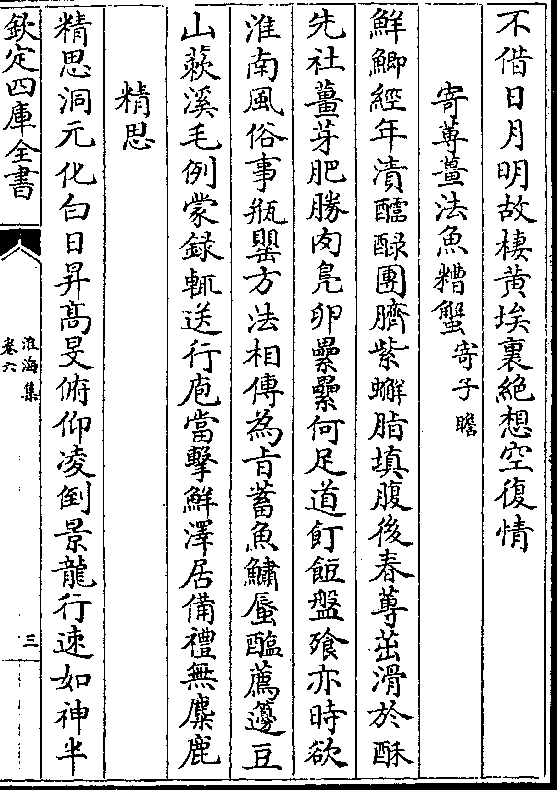 不借日月明故棲黄埃裏絶想空復情
寄蓴薑法魚糟蟹寄子瞻
鮮鯽經年漬醽醁團臍紫蠏脂填腹後春蓴茁滑於酥
先社薑芽肥勝肉鳬卵纍纍何足道飣餖盤飱亦時欲
淮南風俗事瓶罌方法相傳為旨蓄魚鱐蜃醢薦籩豆
山蔌溪毛例蒙録輒送行庖當擊鮮澤居備禮無麋鹿
精思
精思洞元化白日昇髙旻俯仰凌倒景龍行速如神半
欽定四庫全書
淮海集
卷六
三